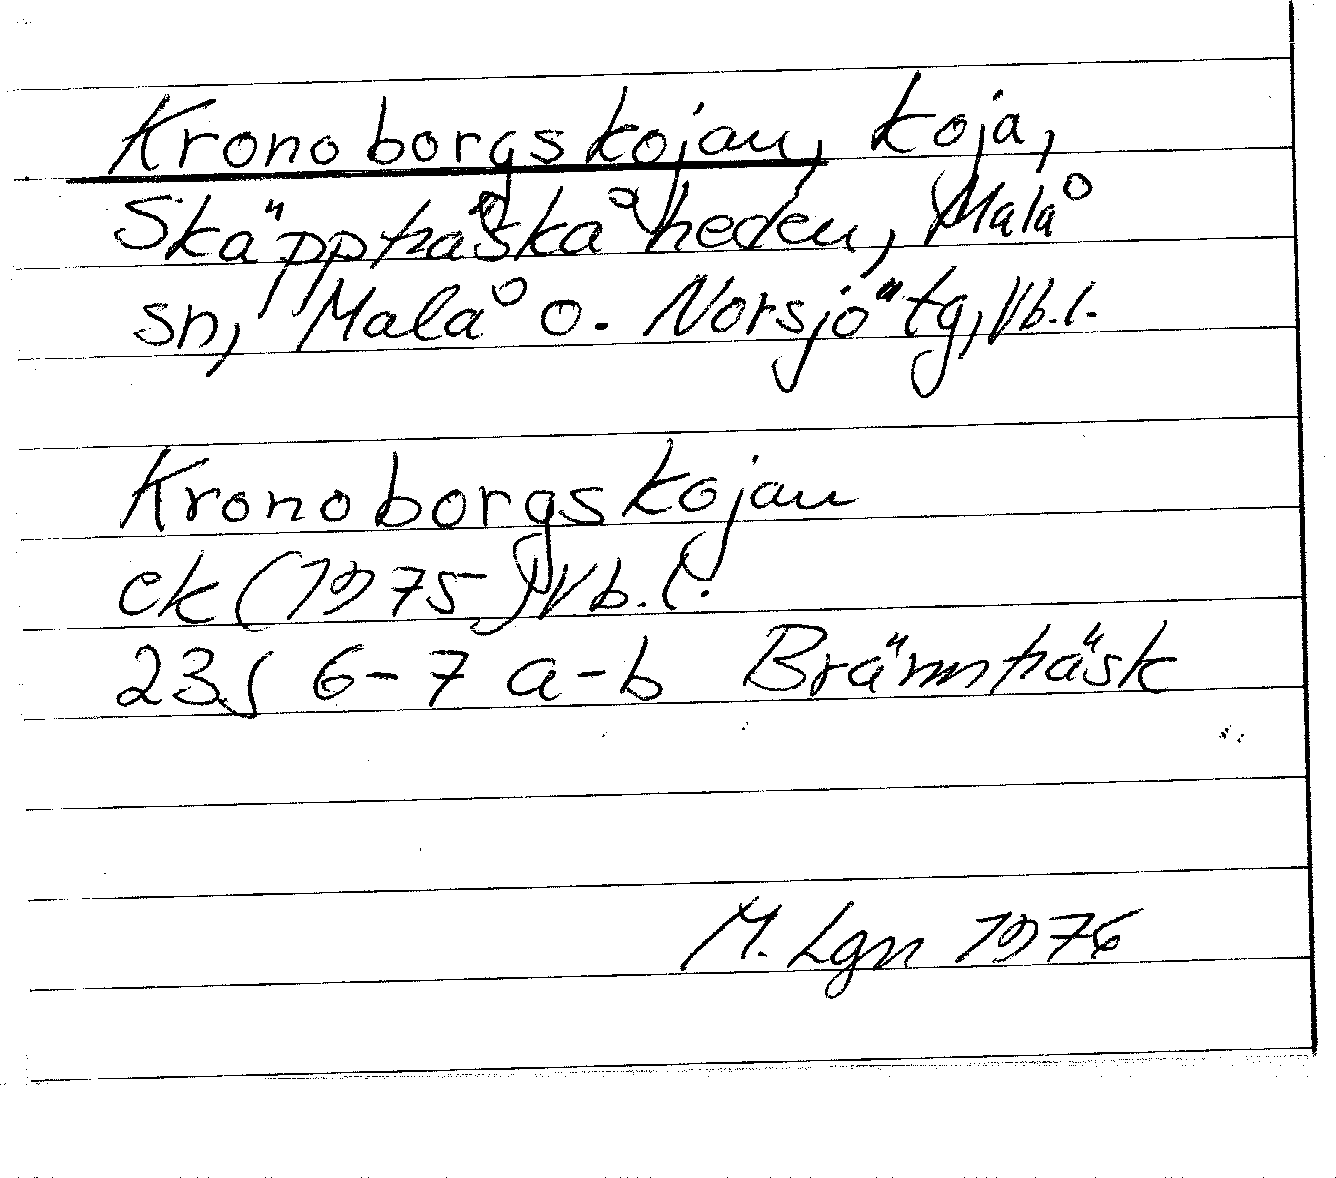 Kronoborgskojan, koja,
Skäppträskåheden, Malå
sn, Malå o. Norsjö tg, Vb.l.
Kronoborgskojan
ek (1975) Vb.l.
23J 6-7 a-b Brännträsk
M. Lgn 1976